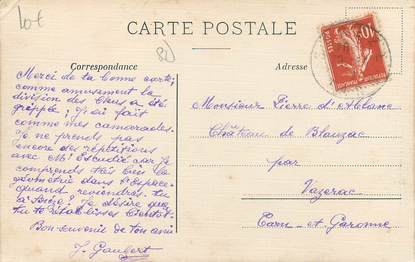 Lot
CARTE POSTALE
Correspondance
Adresse
Merci de ta bonne carte;
comme amusement la
division des Cleus a été
grippée; j'ai fait
comme mes camarades.
Je ne prends pas
encore des répétitions
avec Mr Escudié car je
comprends très bien la
géométrie dans l'Espace.
quand reviendras-tu
à Je désire que
tu te rétablisses bientôt.
Bon souvenir de ton ami
J. Gaubert
Monsieur Pierre d'
Château de Blauzac
par
Vazerac
Tarn-et-Garonne
10